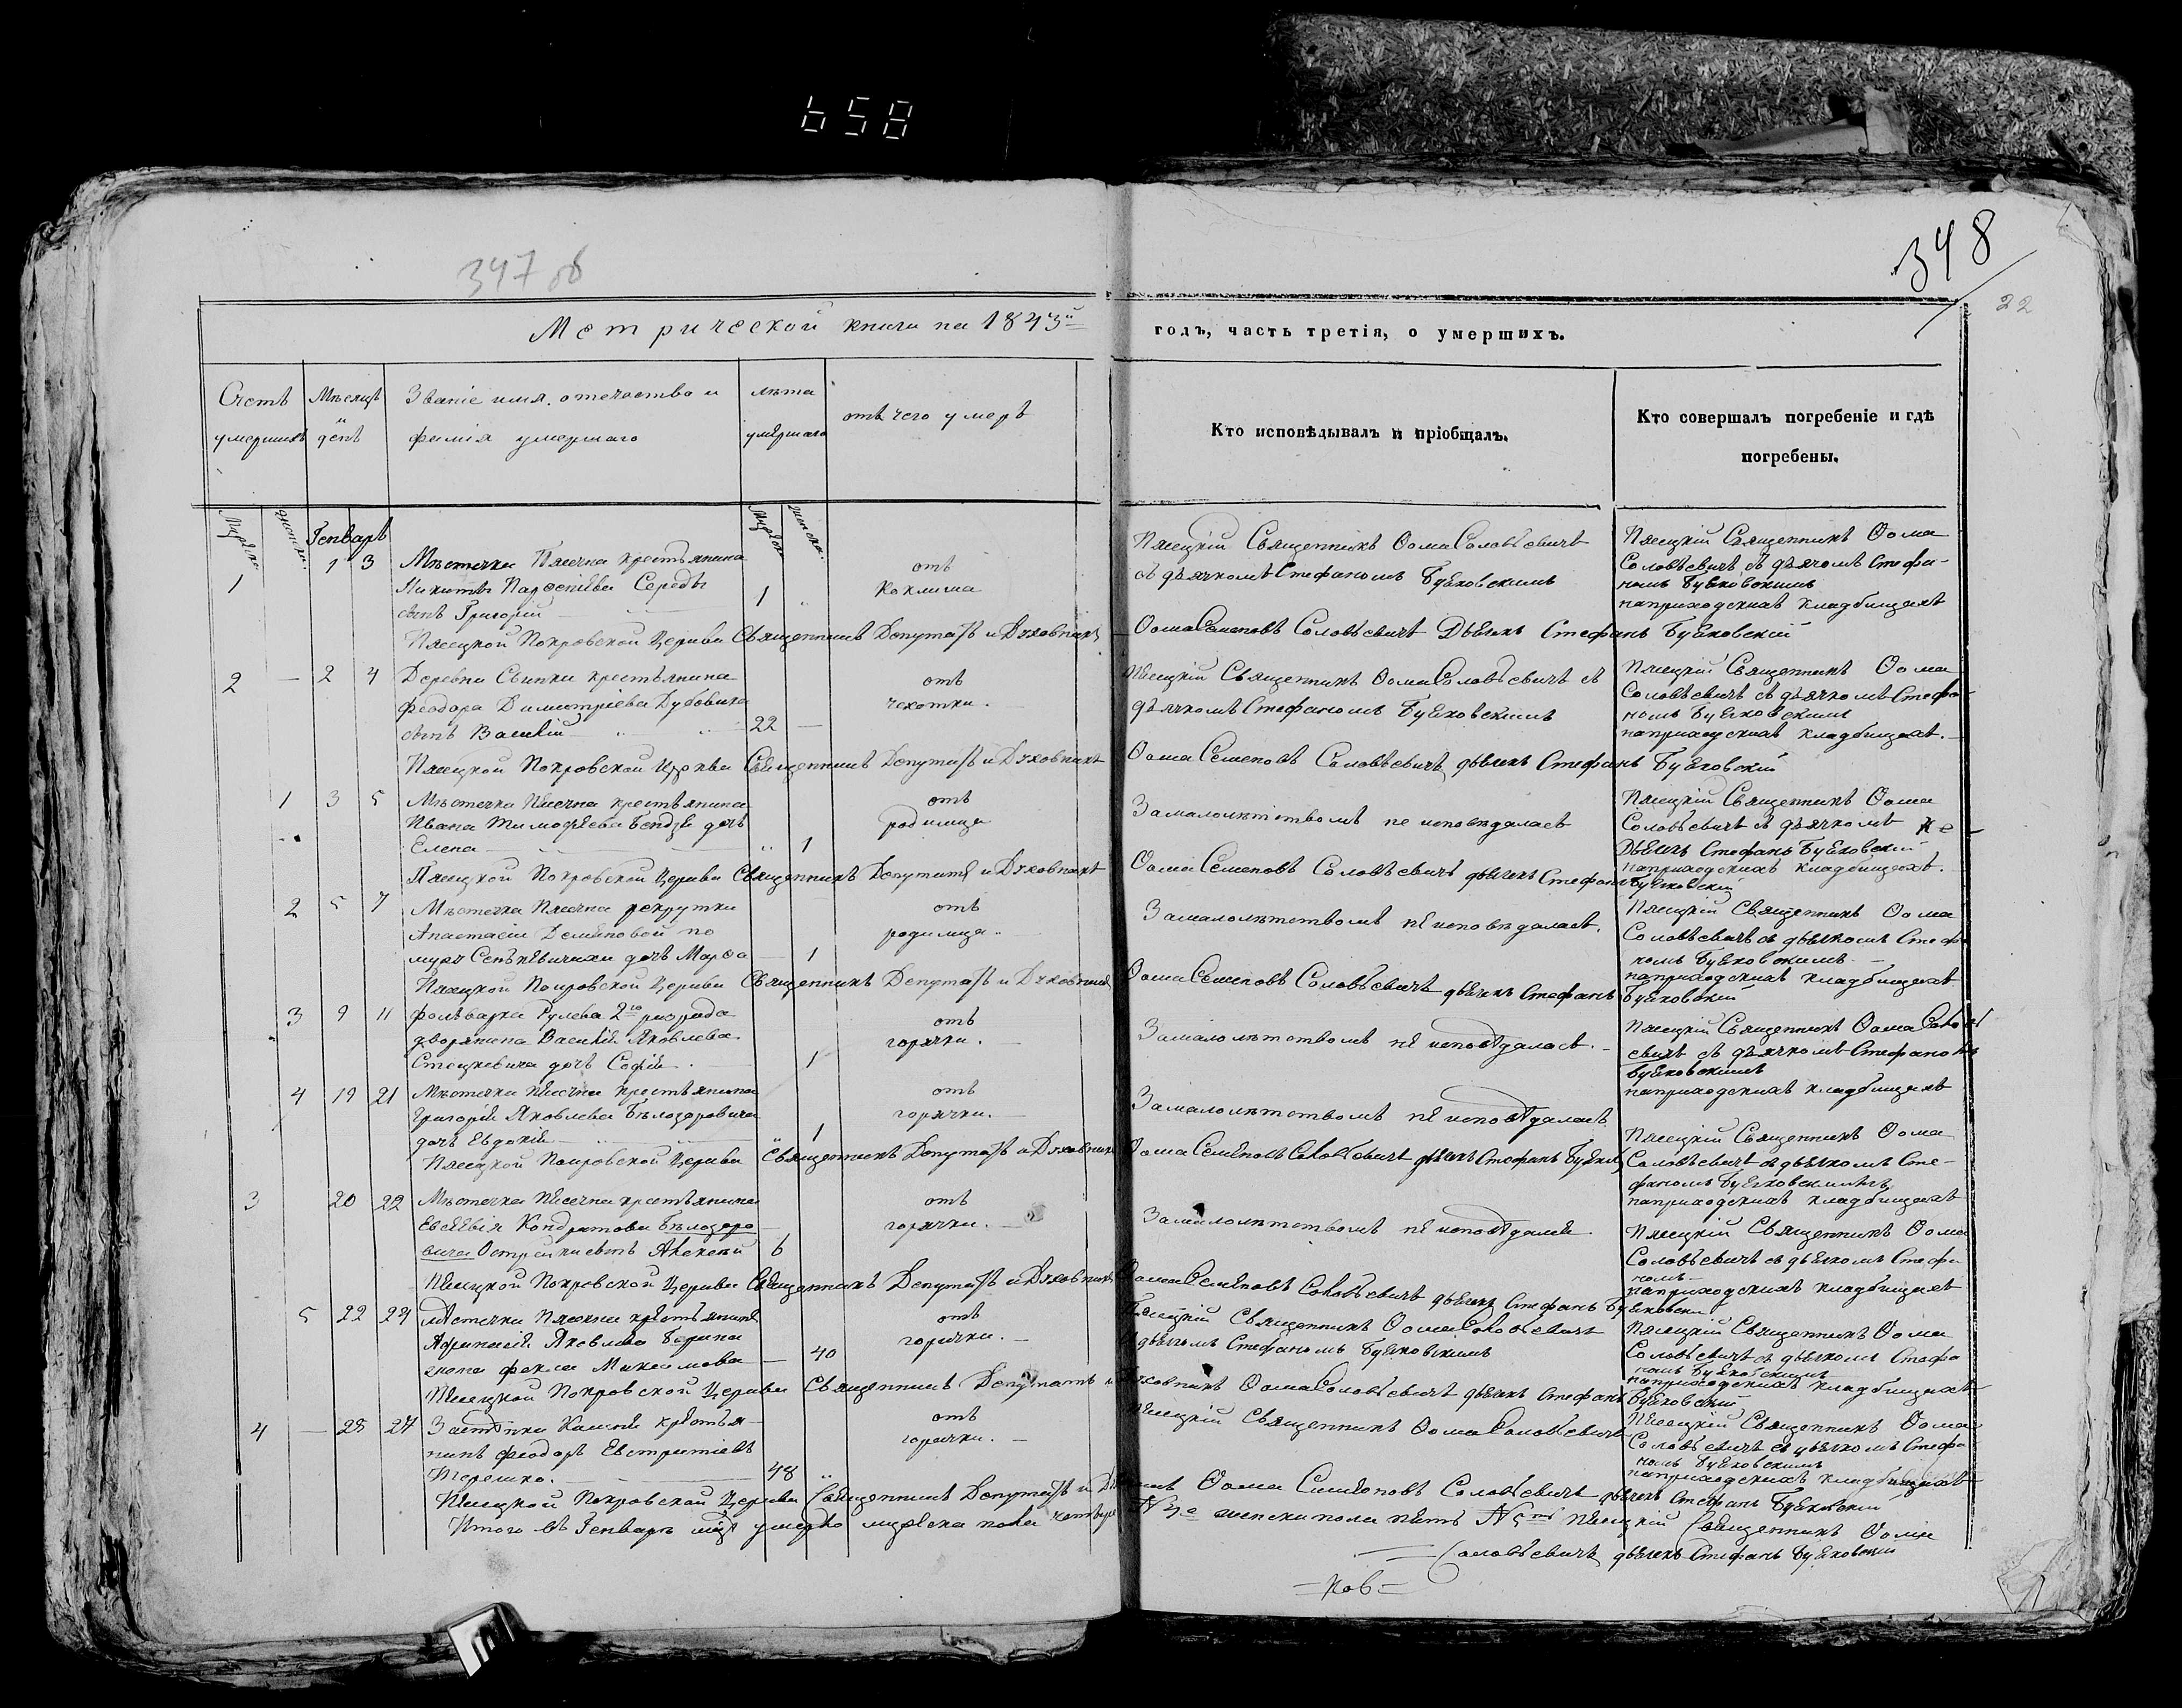 658
347 об
348
22
Метрической книги на 1843й
годъ, часть третія, о умершихъ.
Счетъ умершихъ
Мѣсяцъ и день
Званіе имя. отечество и фамілія умершаго
лѣта умершаго
отъ чего умеръ
Кто исповѣдывалъ и пріобщалъ.
Кто совершалъ погребеніе и гдѣ
погребены.
Генварь
1 1 3 Мѣстечка Пясечна крестьянина
Никиты Парфеніева Середы
сынъ Григорій 1
отъ
коклюша
Пясецкій Священникъ Ѳома Соловѣевичъ
съ дьячкомъ Стефаномъ Буяковскимъ
Пясецкій Священникъ Ѳома
Соловѣевичъ съ дьячкомъ Стефа-
номъ Буяковскимъ
на приходскихъ кладбищахъ
Пясецкой Покровской Церкви Священникъ Депутатъ и Духовникъ Ѳома Семеновъ Соловѣевичъ Дьячекъ Стефанъ Буяковскій
2 — 2 4 Деревни Свинки крестьянина
Феодора Димитріева Дубовика
сынъ Василій 22 —
отъ
чахотки.
Пясецкій Священникъ Ѳома Соловѣевичъ съ
дьячкомъ Стефаномъ Буяковскимъ
Пясецкій Священникъ Ѳома
Соловѣевичъ съ дьячкомъ Стефа-
номъ Буяковскимъ
на приходскихъ кладбищахъ.
Пясецкой Покровской Церкви Священникъ Депутатъ и Духовникъ Ѳома Семеновъ Соловѣевичъ дьячекъ Стефанъ Буяковскій
1 3 5 Мѣстечка Пясечна крестьянина
Ивана Тимофѣева дочь
Елена 1
отъ
родимца
За малолѣтствомъ не исповѣдалась
Пясецкій Священникъ Ѳома
Соловѣевичъ съ дьячкомъ
Дьячекъ Стефанъ Буяковскій
на приходскихъ кладбищахъ.
Пясецкой Покровской Церкви Священникъ Депутатъ и Духовникъ Ѳома Семеновъ Соловѣевичъ дьячекъ Стефанъ Буяковскій
2 5 7 Мѣстечка Пясечна рекрутки
Анастасіи Демьяновой по
мужу Сенькевичихи дочь Марѳа — 1
отъ
родимца..
За малолѣтствомъ не исповѣдалась.
Пясецкій Священникъ Ѳома
Соловѣевичъ съ дьячкомъ Стефа
номъ Буяковскимъ —
на приходскихъ кладбищахъ
Пясецкой Покровской Церкви Священникъ Депутатъ и Духовникъ Ѳома Семеновъ Соловѣевичъ дьячекъ Стефанъ Буяковскій
3 9 11 Фольварка Рулева 2го разряда
дворянина Василія Яковлева
Стецкевича дочь Софія. 1
отъ
горячки.
За малолѣтствомъ не исповѣдалась. —
Пясецкій Священникъ Ѳома Соловѣ
евичъ съ дьячкомъ Стефаномъ
Буяковскимъ
на приходскихъ кладбищахъ
4 19 21 Мѣстечка Пясечна крестьянина
Григорія Яковлева Бѣлозаровича
дочь Евдокія 1
отъ
горячки. —
За малолѣтствомъ не исповѣдалась
Пясецкій Священникъ Ѳома
Соловѣевичъ съ дьячкомъ Сте-
фаномъ Буяковскимъ
на приходскихъ кладбищахъ
Пясецкой Покровской Церкви Священникъ Депутатъ и Духовникъ Ѳома Семеновъ Соловѣевичъ дьячекъ Стефанъ
3 20 22 Мѣстечка Пясечна крестьянина
Евсевія Кондратова Бѣлозаро
вича сынъ Алексѣй 6
отъ
горячки. —
За малолѣтствомъ не исповѣдался
Пясецкій Священникъ Ѳома
Соловѣевичъ съ дьячкомъ Стефа
номъ —
на приходскихъ кладбищахъ
Пясецкой Покровской Церкви Священникъ Депутатъ и Духовникъ Ѳома Семеновъ Соловѣевичъ дьячекъ Стефанъ Буяковскій
5 22 24 Мѣстечка Пясечна крестьянина
Афанасія Яковлева
жена Фекла Максимова — 40
отъ
горячки. —
Пясецкій Священникъ Ѳома Соловѣевичъ
съ дьячкомъ Стефаномъ Буяковскимъ
Пясецкій Священникъ Ѳома
Соловѣевичъ съ дьячкомъ Стефа
номъ Буяковскимъ
на приходскихъ кладбищахъ
Пясецкой Покровской Церкви Священникъ Депутатъ и Духовникъ Ѳома Соловѣевичъ дьячекъ Стефанъ Буяковскій
4 — 25 27 Застѣнка крестья-
нинъ Феодоръ Евстратіевъ
Терешко. 48
отъ
горячки. —
Пясецкій Священникъ Ѳома Соловѣевичъ
Пясецкій Священникъ Ѳома
Соловѣевичъ съ дьячкомъ Стефа
номъ Буяковскимъ
на приходскихъ кладбищахъ
Пясецкой Покровской Церкви Священникъ Депутатъ и Ѳома Семеновъ Соловѣевичъ дьячекъ Стефанъ Буяковскій
Итого въ Генварѣ умерло мужеска пола четыре женска пола пять Пясецкій Священникъ Ѳома
Соловѣевичъ дьячекъ Стефанъ Буяковскій